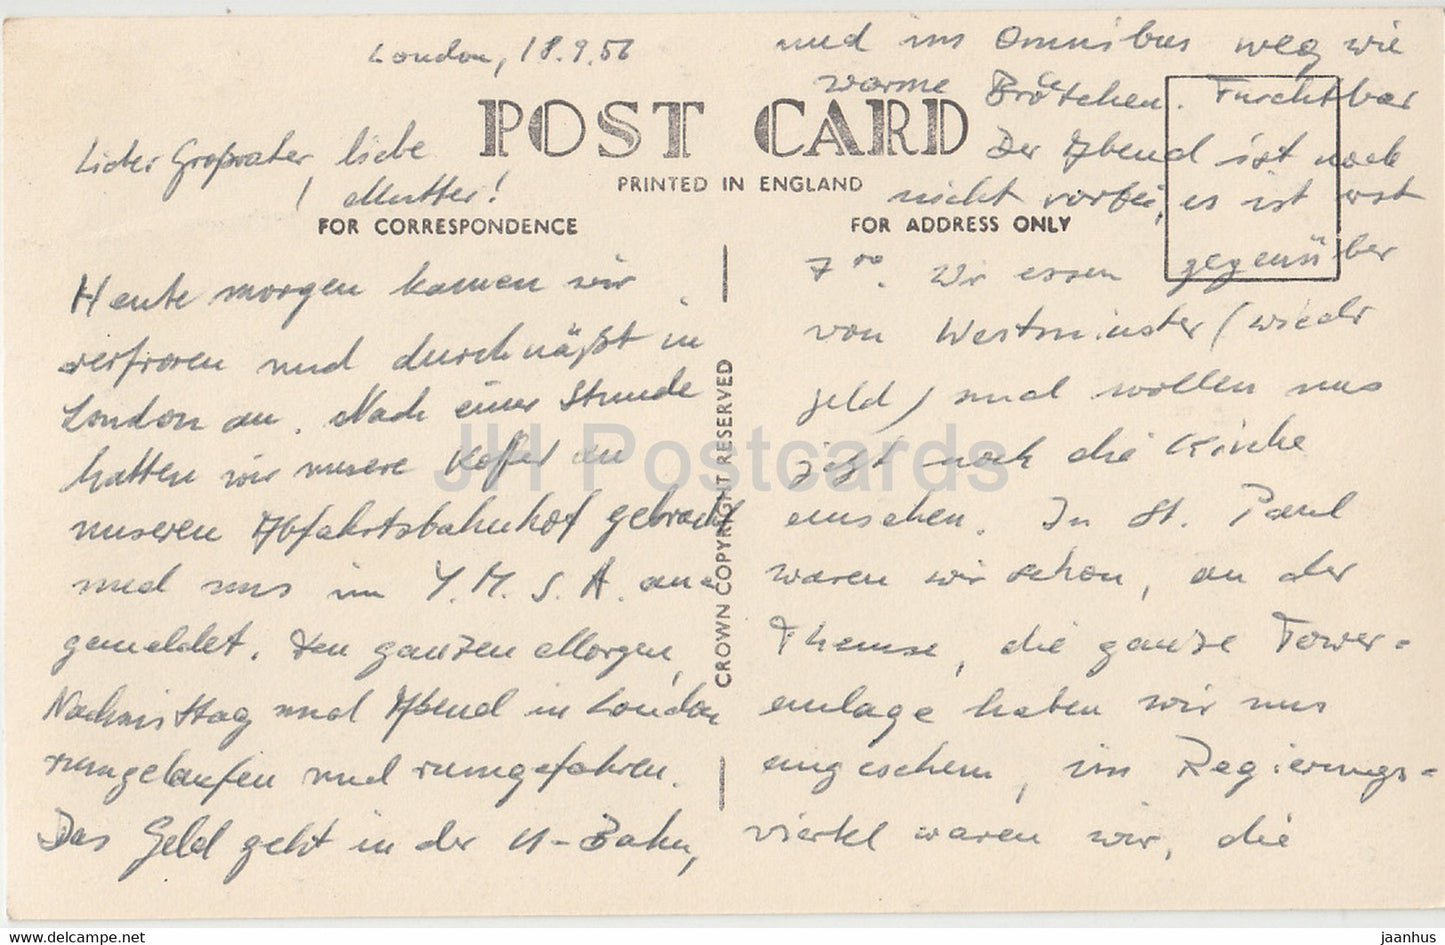 London, 18.9.56
POST CARD
PRINTED IN ENGLAND
Lieber Großvater, liebe
Mutter!
FOR CORRESPONDENCE
Heute morgen kamen wir
verfroren und durchnäßt in
London an. Nach einer Stunde
hatten wir unsere Koffer an
unseren Abfahrtsbahnhof gebracht
und uns im Y.M.S.A. an=
gemeldet. Den ganzen Morgen,
Nachmittag und Abend in London
rumgelaufen und rumgefahren.
Das Geld geht in der U-Bahn,
CROWN COPYRIGHT RESERVED
FOR ADDRESS ONLY
und im Omnibus weg wie
warme Brötchen. Furchtbar
Der Abend ist noch
nicht vorbei, es ist erst
7°°. Wir essen gegenüber
von Westminster (wieder
Geld) und wollen uns
jetzt noch die Kirche
ansehen. In St. Paul
waren wir schon, an der
Themse, die ganze Tower=
anlage haben wir uns
angesehen, im Regierungs=
viertel waren wir, die
JH Postcards
www.delcampe.net
jaanhus